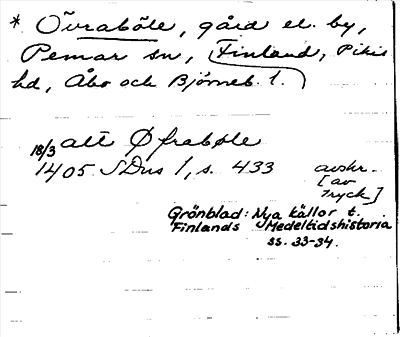 * Övraböle, gård el. by,
Pemar sn, Finland, Pikis
hd, Åbo och Björneb. l.
18/3 att Øfrabøle
1405 SDns 1, s. 433 avskr.
[av
tryck]
Grönblad: Nya källor t.
Finlands Medeltidshistoria
ss. 33-34.